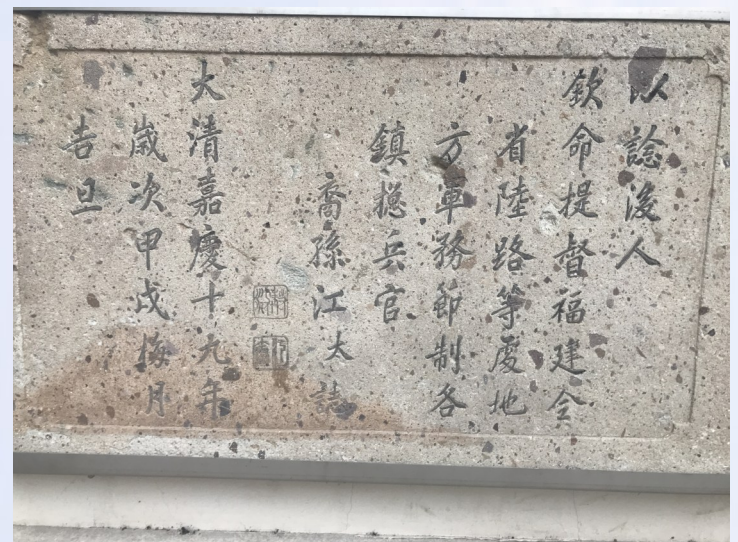 以諗後人
欽命提督福建全
省陸路等處地
方軍務節制各
鎮總兵官
裔孫江太誌
大清嘉慶十九年
歲次甲戌梅月
吉旦